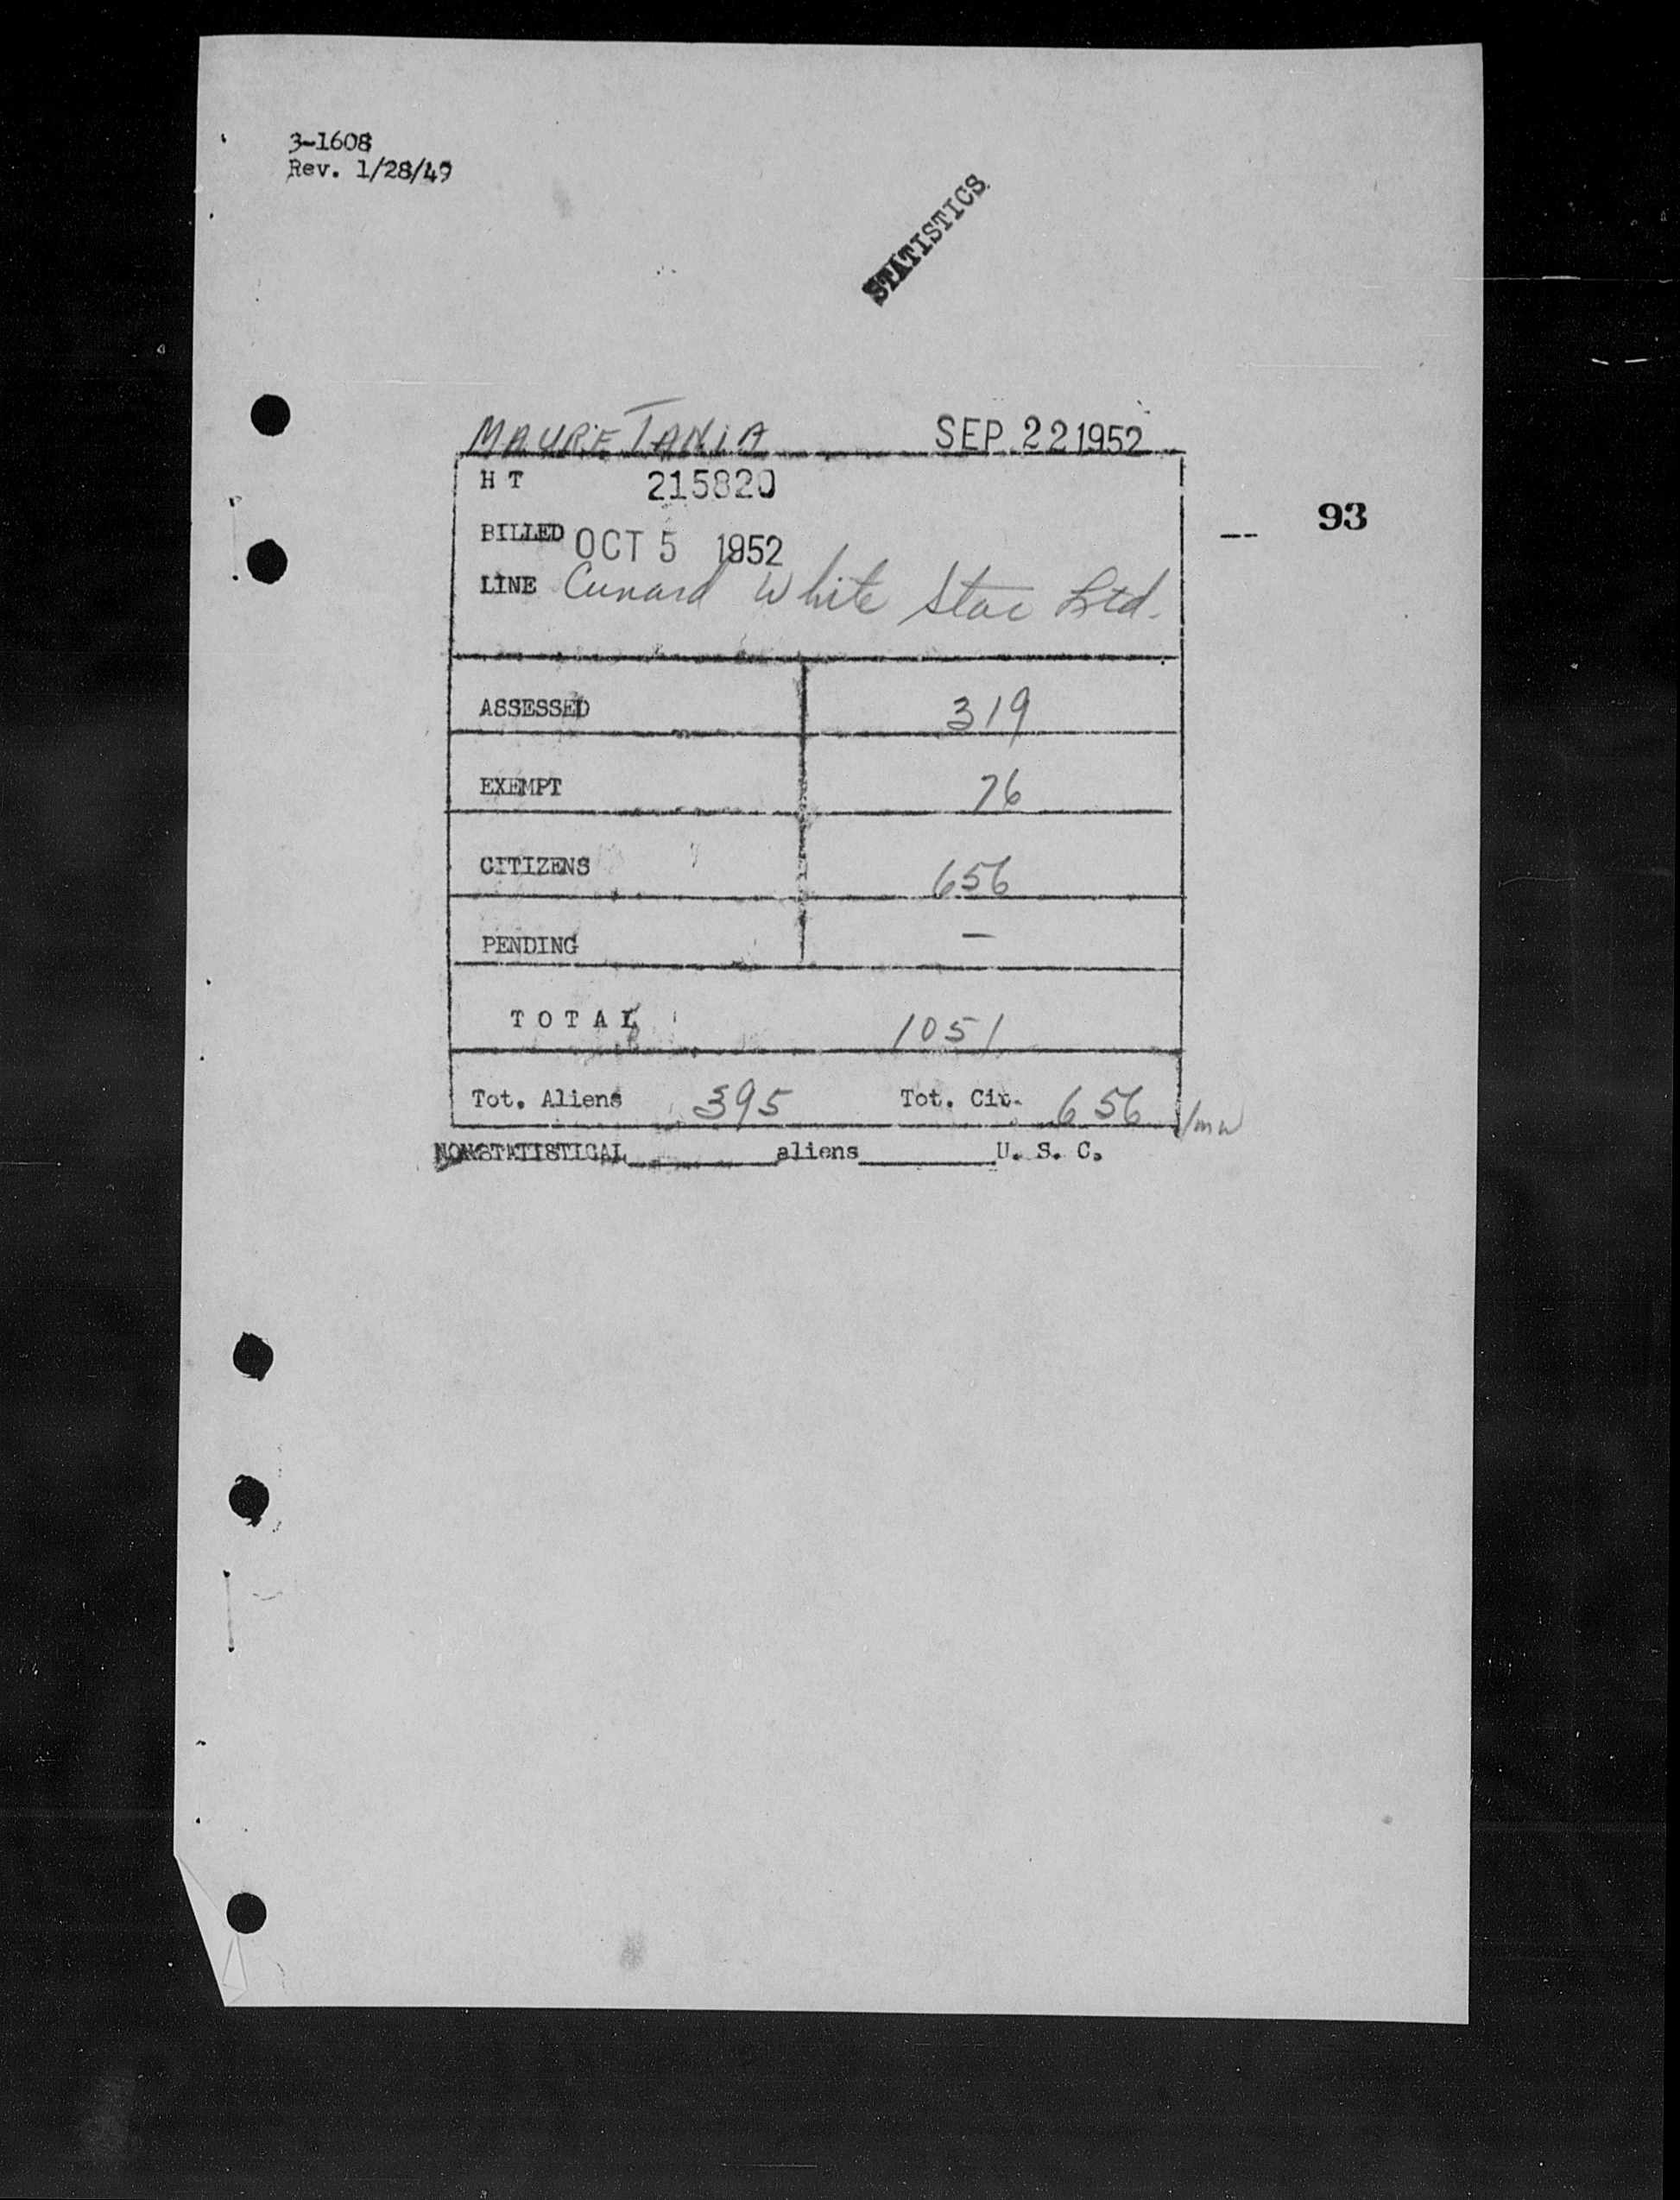 3-1608
Rev. 1/28/49
STATISTICS
MAURETANIA SEP 22 1952
H T 215820
93
BILLED OCT 5 1952
LINE Cunard White Star Ltd.
ASSESSED 319
EXEMPT 76
CITIZENS 656
PENDING —
TOTAL 1051
Tot. Aliens 395 Tot. Cit. 656
NONSTATISTICAL ________ aliens ________ U. S. C.